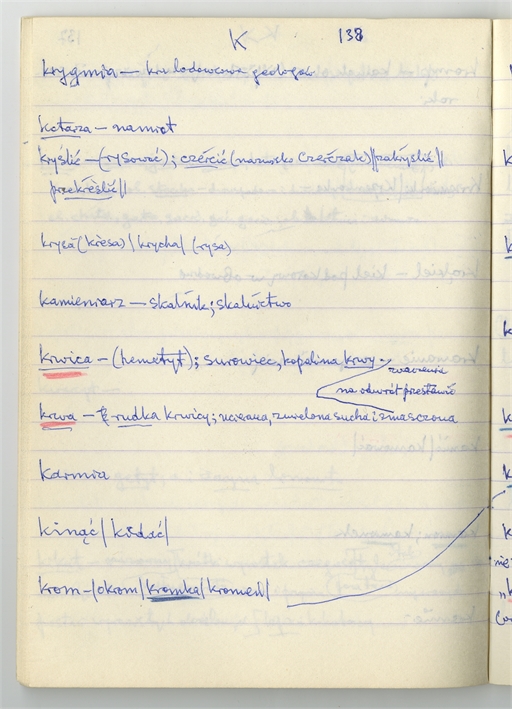 K 138
krygmia – kra lodowcowa geologów
kotarza – namiot
kryślić – (rysować); czercić (nazwisko Czerczak) || zakryślić ||
przekrèślić ||
krysá (krèsa) | krycha | (rysa)
kamieniarz – skalnik; skalnictwo
krwica – (hematyt); surowiec, kopalina krwy –
znaczenia
na odwrót przestawić
krwa – rudka krwicy; ucierana, zmielona sucha i zmaszczona
karmia
kinąć | kidać |
krom – | okrom | kromka | kromeń |